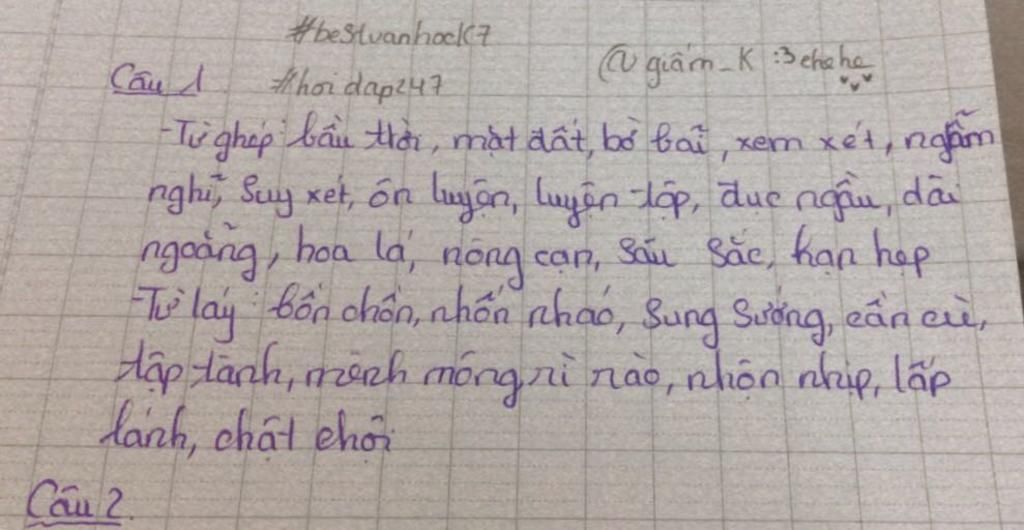 #bestvanhock7
@giấm_K :3 hehe
Câu 1 #hoidap247
-Từ ghép: bầu trời, mặt đất, bờ bãi, xem xét, ngẫm
nghĩ, suy xét, ôn luyện, luyện tập, đục ngầu, dài
ngoẵng, hoa lá, nông cạn, sâu sắc, hạn hẹp
-Từ láy: bồn chồn, nhốn nháo, sung sướng, cần cù,
tập tành, mênh mông, rì rào, nhộn nhịp, lấp
lánh, chật chội
Câu 2.